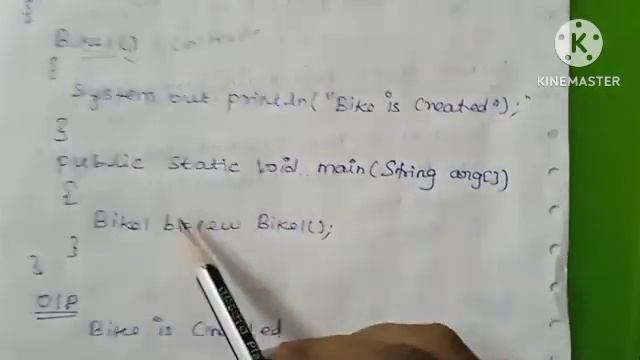 Bike1()
{
System out println("Bike is Created");"
}
Public static void main(String arg[])
{
Bike1 b=new Bike1();
}
}
O/P
Bike is Created
K
KINEMASTER